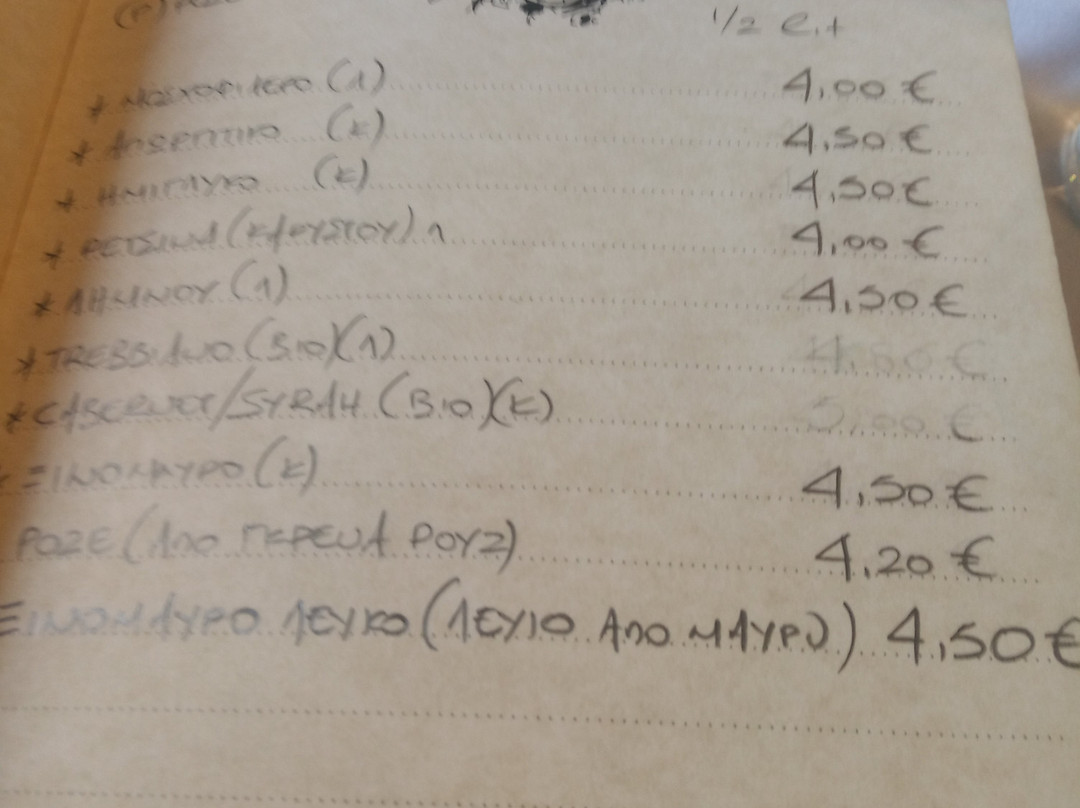 1/2 Lit
* ΜΟΣΧΟΦΙΛΕΡΟ (Λ) 4,00 €
* (Κ) 4,50 €
* ΗΜΙΓΛΥΚΟ (Κ) 4,50 €
* ΡΕΤΣΙΝΑ (ΚΑΡΥΣΤΟΥ) Λ 4,00 €
* ΛΗΜΝΟΥ (Λ) 4,50 €
* TREBBIANO (BIO)(Λ) €
* CABERNET/SYRAH (BIO)(Κ) 5,00 €
* ΞΙΝΟΜΑΥΡΟ (Κ) 4,50 €
ΡΟΖΕ (ΑΠΟ ΓΚΡΕΝΑ ΡΟΥΖ) 4,20 €
ΞΙΝΟΜΑΥΡΟ ΛΕΥΚΟ (ΛΕΥΚΟ ΑΠΟ ΜΑΥΡΟ) 4,50 €